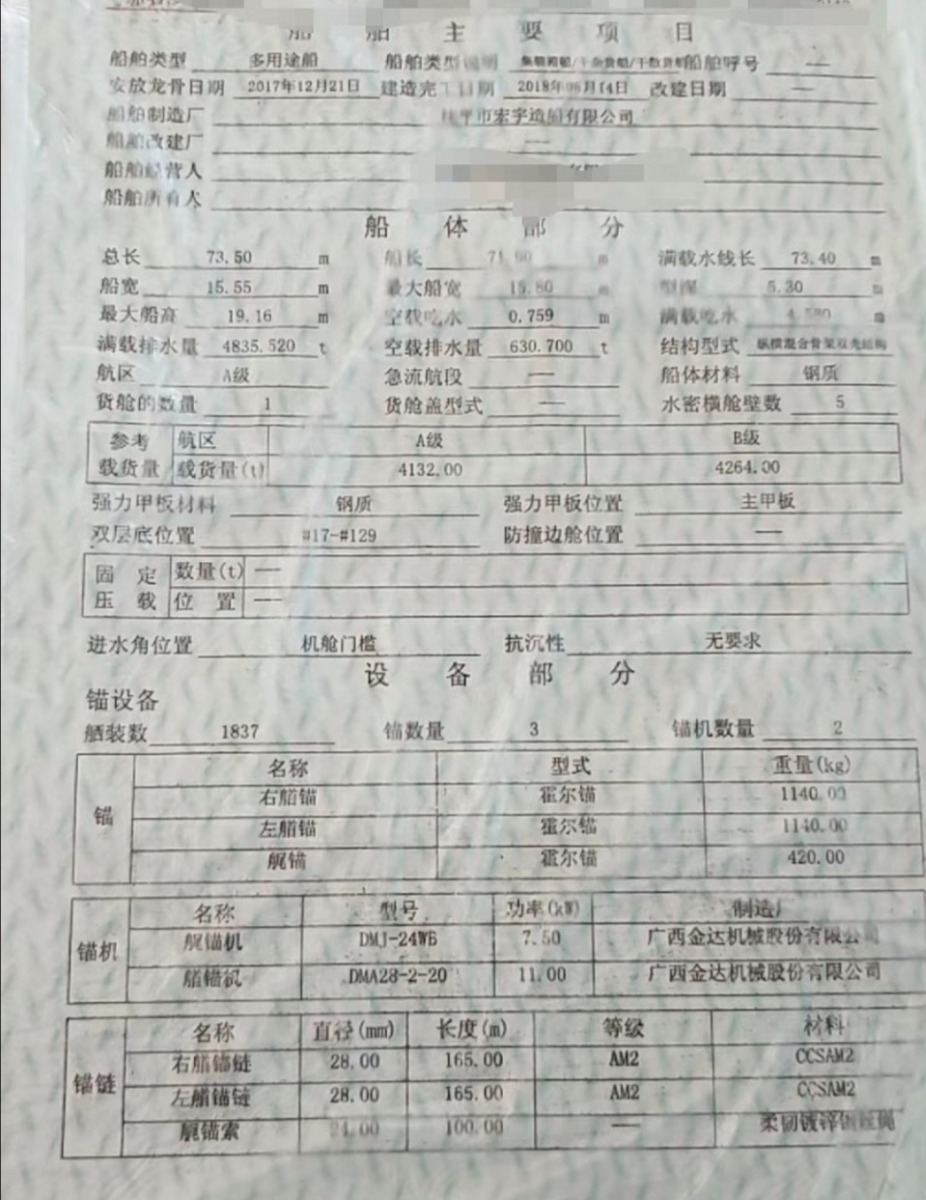 船舶主要项目
船舶类型 多用途船 船舶类型说明 集装箱船/干杂货船/干散货船 船舶呼号 —
安放龙骨日期 2017年12月21日 建造完工日期 2018年06月14日 改建日期 —
船舶制造厂 桂平市宏宇造船有限公司
船舶改建厂 —
船舶经营人
船舶所有人
船体部分
总长 73.50 m 船长 m 满载水线长 73.40 m
船宽 15.55 m 最大船宽 15.80 m 型深 5.30 m
最大船高 19.16 m 空载吃水 0.759 m 满载吃水 m
满载排水量 4835.520 t 空载排水量 630.700 t 结构型式 纵横混合骨架双壳结构
航区 A级 急流航段 — 船体材料 钢质
货舱的数量 1 货舱盖型式 — 水密横舱壁数 5
参考 航区 A级 B级
载货量 载货量(t) 4132.00 4264.00
强力甲板材料 钢质 强力甲板位置 主甲板
双层底位置 #17-#129 防撞边舱位置 —
固定 数量(t) —
压载 位置 —
进水角位置 机舱门槛 抗沉性 无要求
设备部分
锚设备
舾装数 1837 锚数量 3 锚机数量 2
锚 名称 型式 重量(kg)
右艏锚 霍尔锚 1140.00
左艏锚 霍尔锚 1140.00
艉锚 霍尔锚 420.00
锚机 名称 型号 功率(kW) 制造厂
艉锚机 DMJ-24WB 7.50 广西金达机械股份有限公司
艏锚机 DMA28-2-20 11.00 广西金达机械股份有限公司
锚链 名称 直径(mm) 长度(m) 等级 材料
右艏锚链 28.00 165.00 AM2 CCSAM2
左艏锚链 28.00 165.00 AM2 CCSAM2
艉锚索 100.00 — 柔韧镀锌钢丝绳